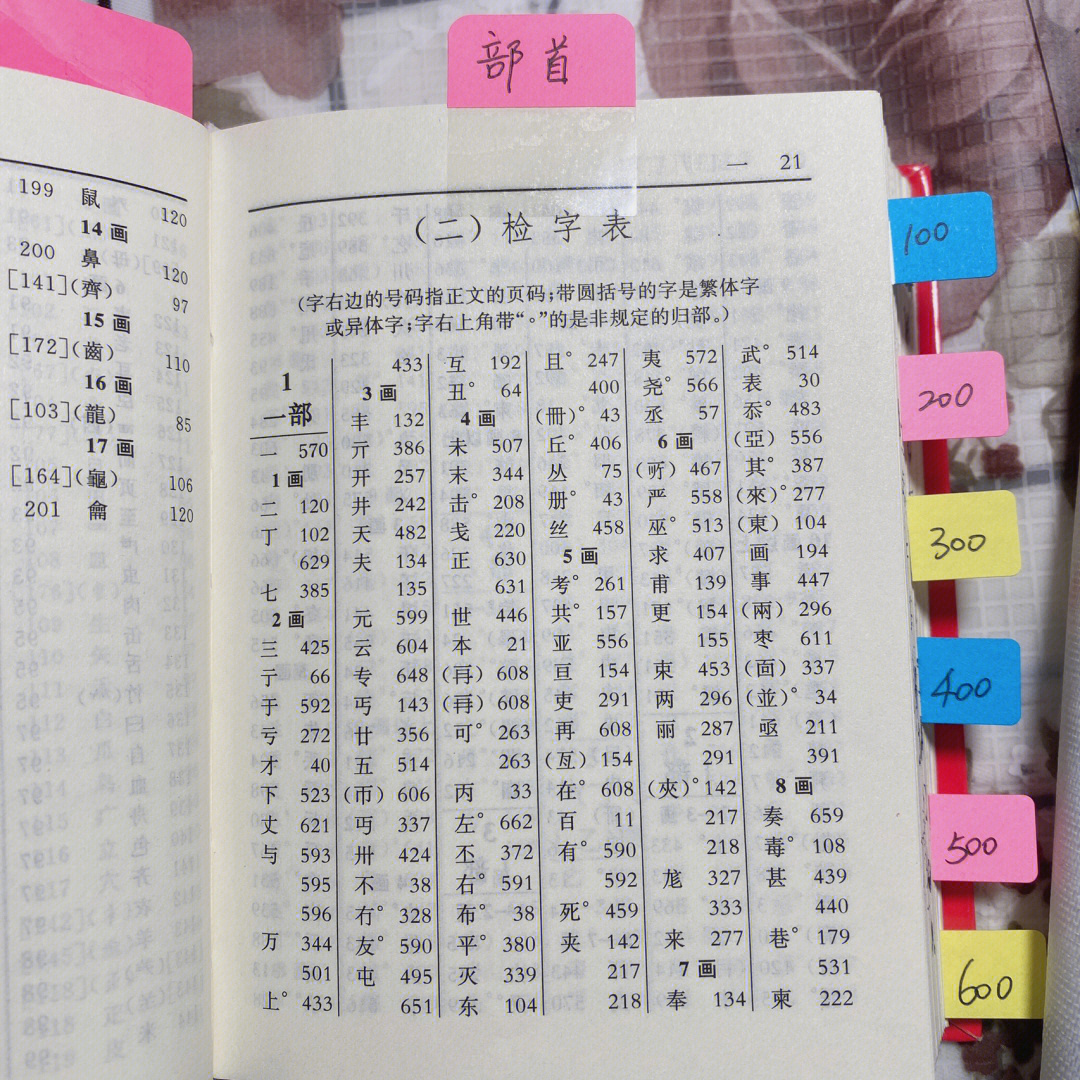 部首
199 鼠 120
14画
200 鼻 120
[141](齊) 97
15画
[172](齒) 110
16画
[103](龍) 85
17画
[164](龜) 106
201 龠 120
一 21
(二)检字表
(字右边的号码指正文的页码;带圆括号的字是繁体字
或异体字;字右上角带“°”的是非规定的归部。)
1
一部
一 570
1画
二 120
丁 102
629
七 385
2画
三 425
亍 66
于 592
亏 272
才 40
下 523
丈 621
与 593
595
596
万 344
501
上° 433
433
3画
丰 132
亓 386
开 257
井 242
天 482
夫 134
135
元 599
云 604
专 648
丐 143
廿 356
五 514
(帀) 606
丏 337
卅 424
不 38
冇 328
友° 590
屯 495
651
互 192
丑° 64
4画
未 507
末 344
击° 208
戋 220
正 630
631
世 446
本 21
608
608
可° 263
263
丙 33
左° 662
丕 372
右° 591
布° 38
平° 380
灭 339
东 104
且° 247
400
(冊)° 43
丘° 406
丛 75
册° 43
丝 458
5画
考° 261
共° 157
亚 556
亘 154
吏 291
再 608
(亙) 154
在° 608
百 11
有° 590
592
死° 459
夹 142
217
218
夷 572
尧° 566
丞 57
6画
(㪽) 467
严 558
巫° 513
求 407
甫 139
更 154
155
束 453
两 296
丽 287
291
(夾)° 142
217
218
尨 327
333
来 277
7画
奉 134
武° 514
表 30
忝° 483
(亞) 556
其° 387
(來)° 277
(東) 104
画 194
事 447
(兩) 296
枣 611
(面) 337
(並)° 34
亟 211
391
8画
奏 659
毒° 108
甚 439
440
巷° 179
531
柬 222
100
200
300
400
500
600